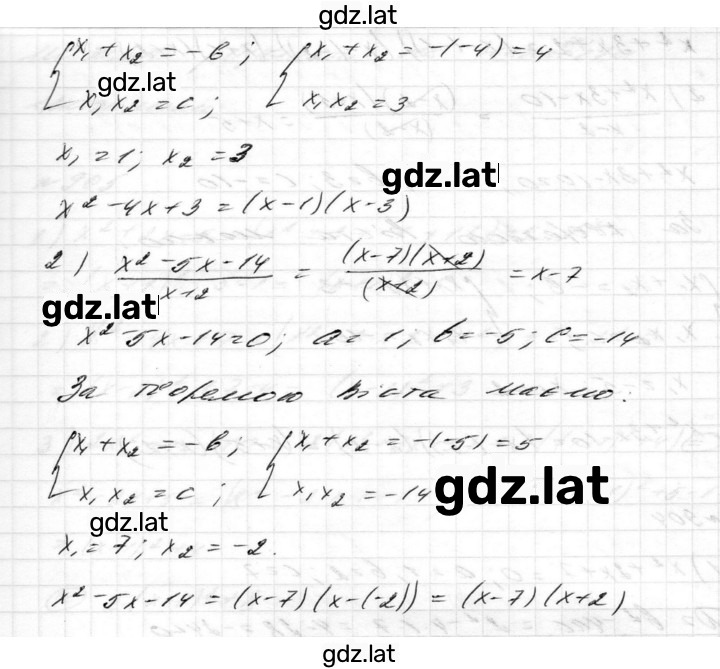 gdz.lat
{x₁ + x₂ = -b; {x₁ + x₂ = -(-4) = 4
gdz.lat
x₁ x₂ = c; x₁ x₂ = 3
x₁ = 1; x₂ = 3
gdz.lat
x² - 4x + 3 = (x-1)(x-3)
2) (x² - 5x - 14)/(x+2) = ((x-7)(x+2))/((x+2)) = x-7
gdz.lat
x² - 5x - 14 = 0; a = 1, b = -5; c = -14
За теоремою Вієта маємо:
{x₁ + x₂ = -b; {x₁ + x₂ = -(-5) = 5
x₁ x₂ = c; x₁ x₂ = -14
gdz.lat
gdz.lat
x₁ = 7; x₂ = -2.
x² - 5x - 14 = (x-7)(x-(-2)) = (x-7)(x+2)
gdz.lat